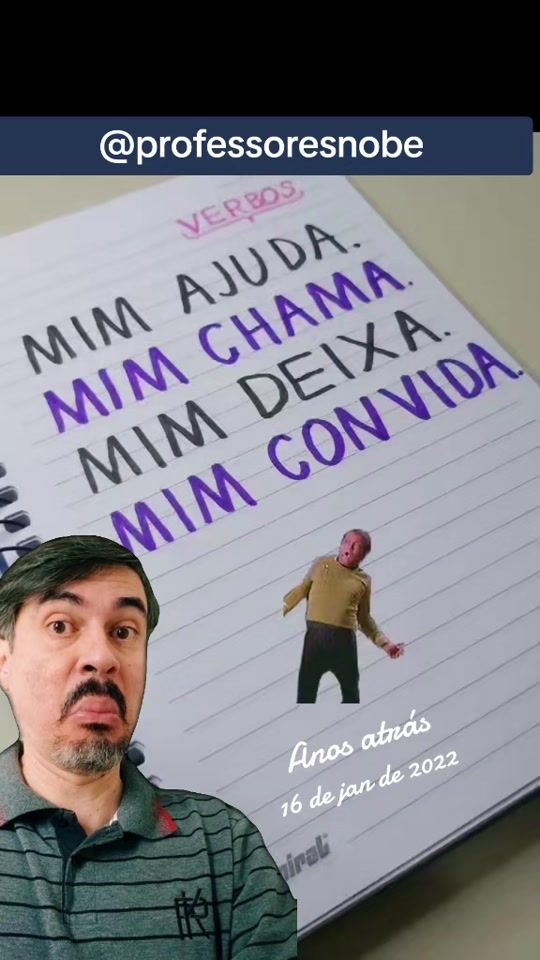 @professoresnobe
VERBOS
MIM AJUDA.
MIM CHAMA.
MIM DEIXA.
MIM CONVIDA.
Anos atrás
16 de jan de 2022